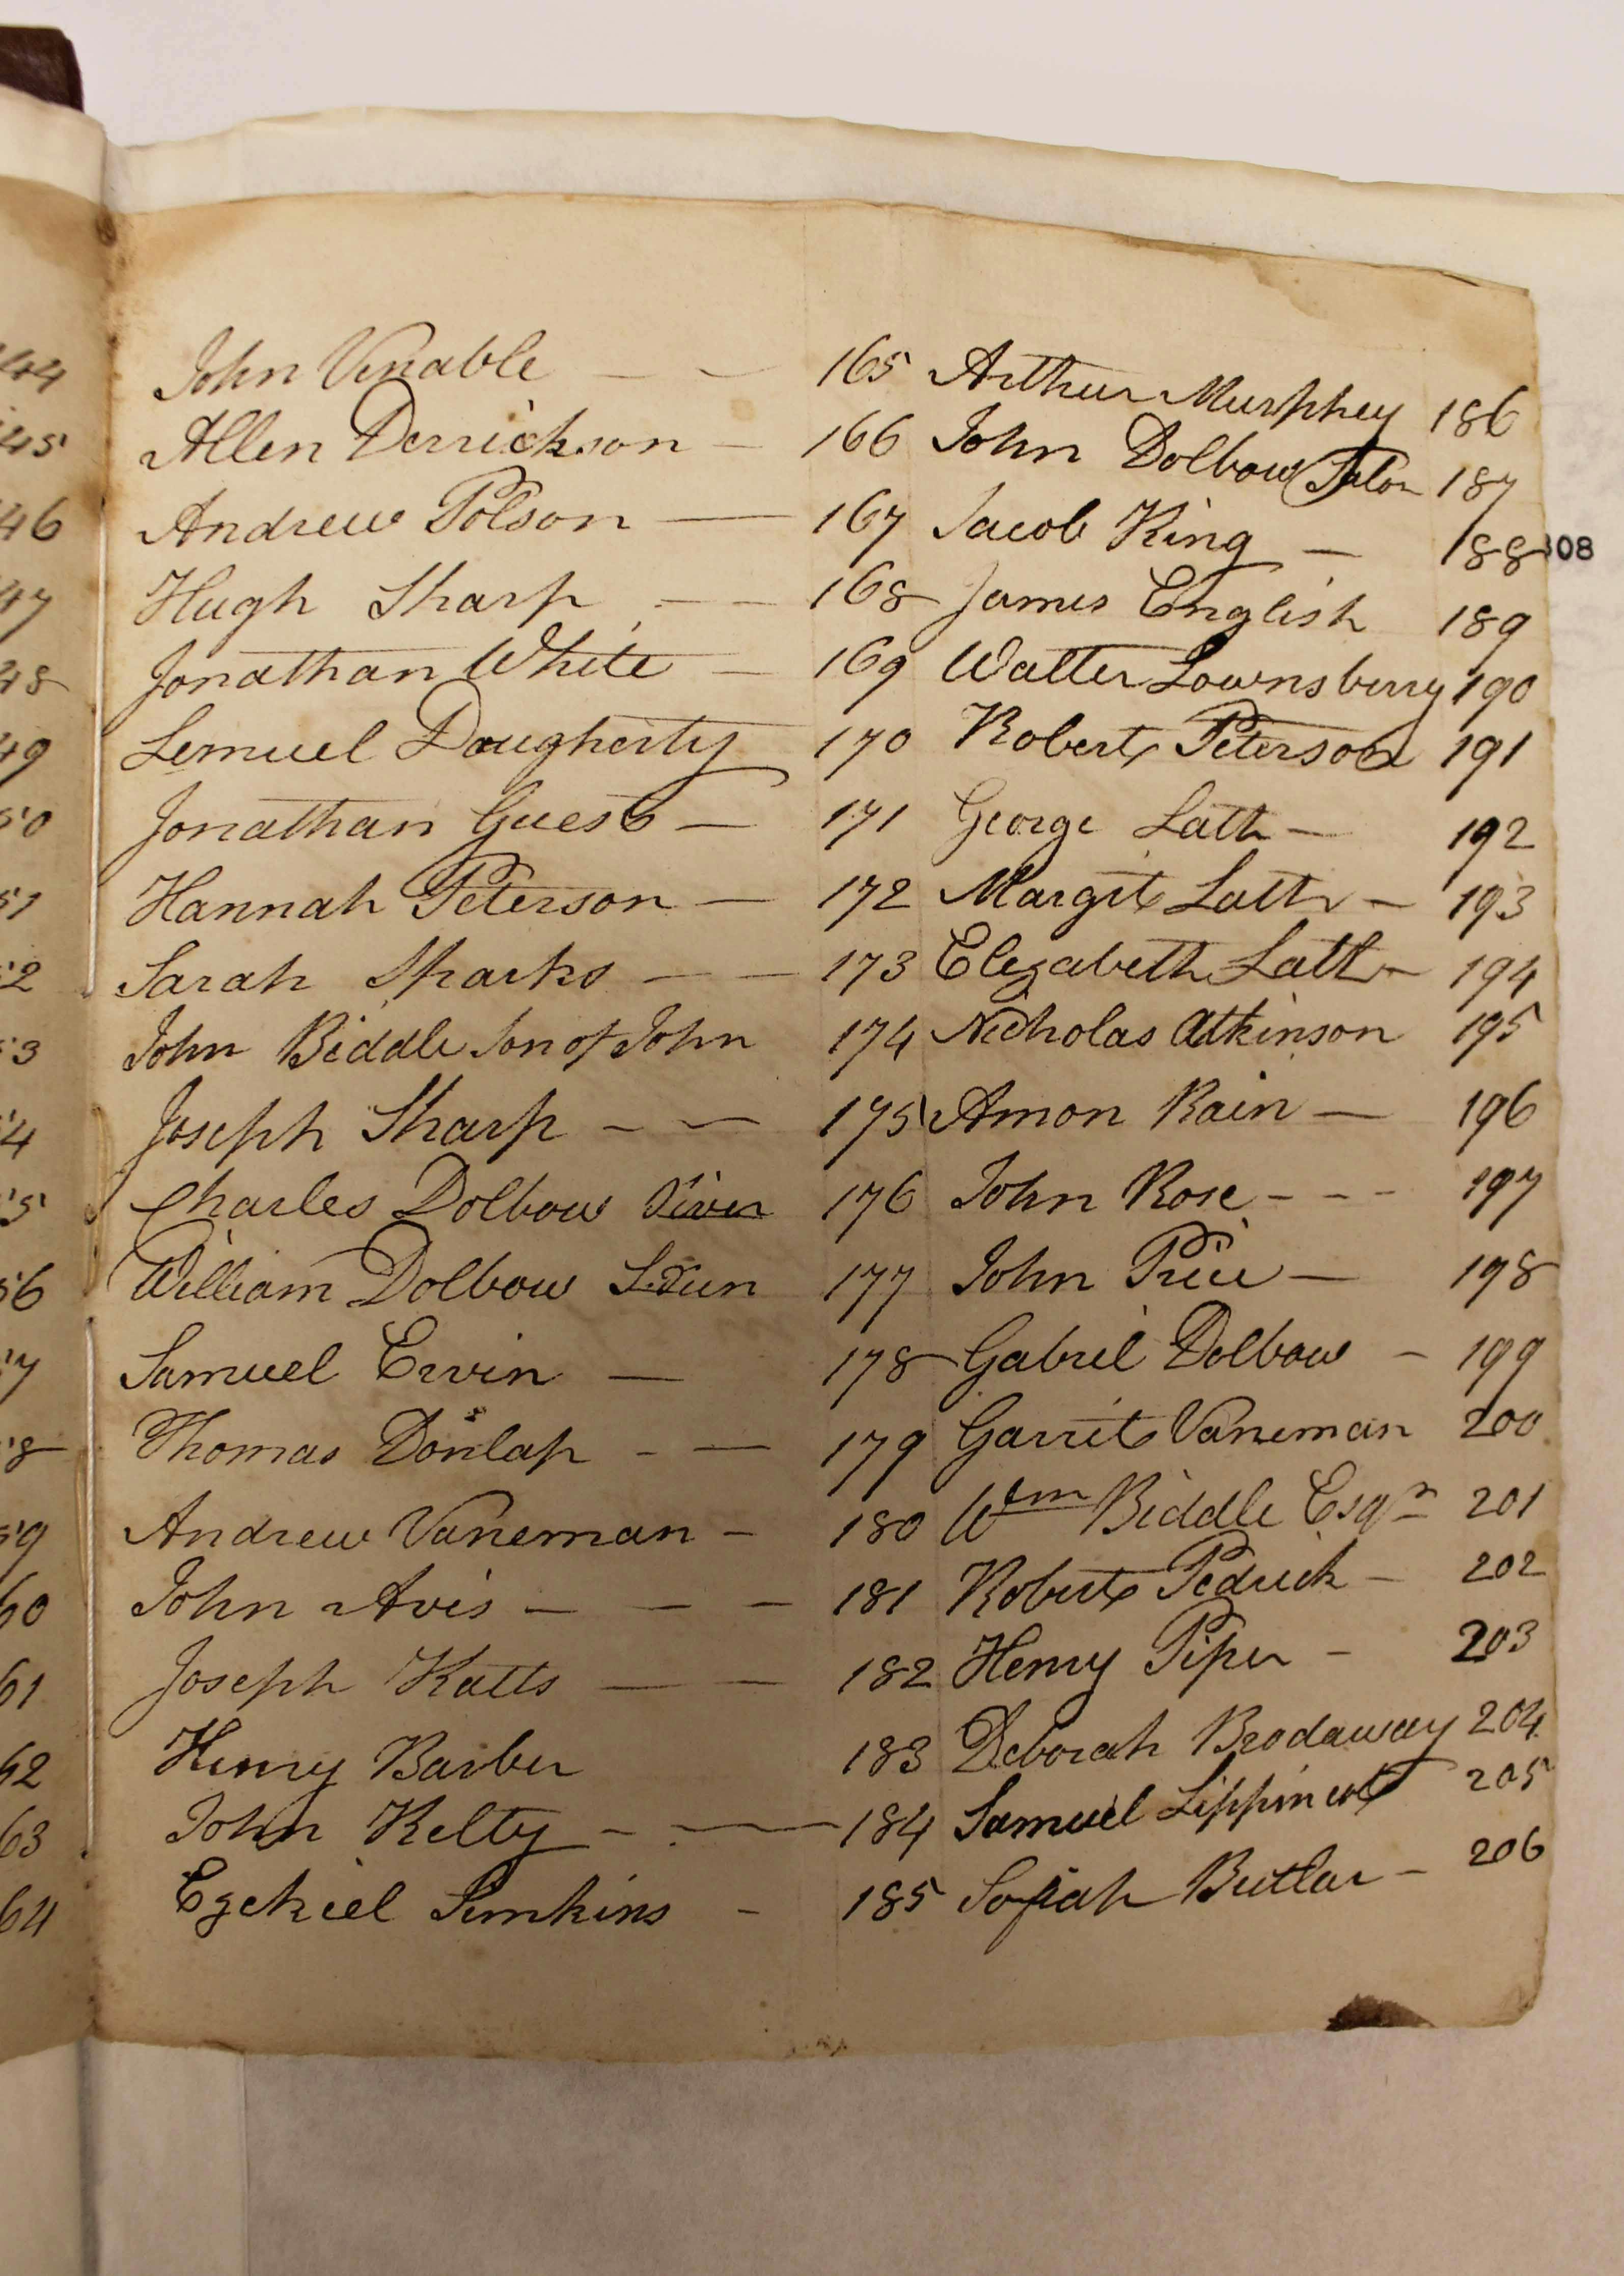 44
John Venable 165 Arthur Murphey 186
45
Allen Derrickson 166 John Dolbow 187
46
Andrew Polson 167 Jacob King 188
308
47
Hugh Sharp 168 James English 189
48
Jonathan White 169 Walter Lownsberry 190
49
Lemuel Daugherty 170 Robert Peterson 191
50
Jonathan Guest 171 George Latt 192
51
Hannah Peterson 172 Margit Latt 193
52
Sarah Sparks 173 Elezabeth Latt 194
53
John Biddle Son of John 174 Nicholas Atkinson 195
54
Joseph Sharp 175 Amon Rain 196
55
Charles Dolbow River 176 John Rose 197
56
William Dolbow 177 John Price 198
57
Samuel Ervin 178 Gabriel Dolbow 199
58
Thomas Donlap 179 Garrit Vaneman 200
59
Andrew Vaneman 180 Wm Biddle Esqr 201
60
John Avis 181 Robert Pedrick 202
61
Joseph Katts 182 Henry Piper 203
62
Henry Barber 183 Deborah Brodaway 204
63
John Kelty 184 Samuel Lippincott 205
64
Ezekiel Simkins 185 Sofiah Butlar 206